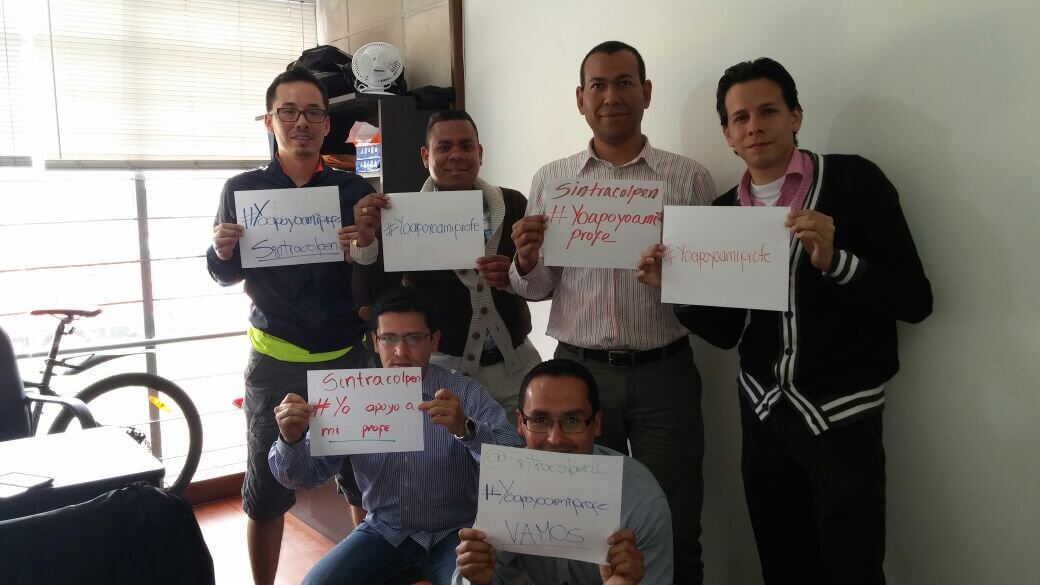 #Yoapoyoamiprofe
Sintracolpen
#Yoapoyoamiprofe
Sintracolpen
#Yoapoyoami
profe
#Yoapoyoamiprofe
Sintracolpen
#Yo apoyo a
mi profe
@Sintracolpen1
#Yoapoyoamiprofe
VAMOS